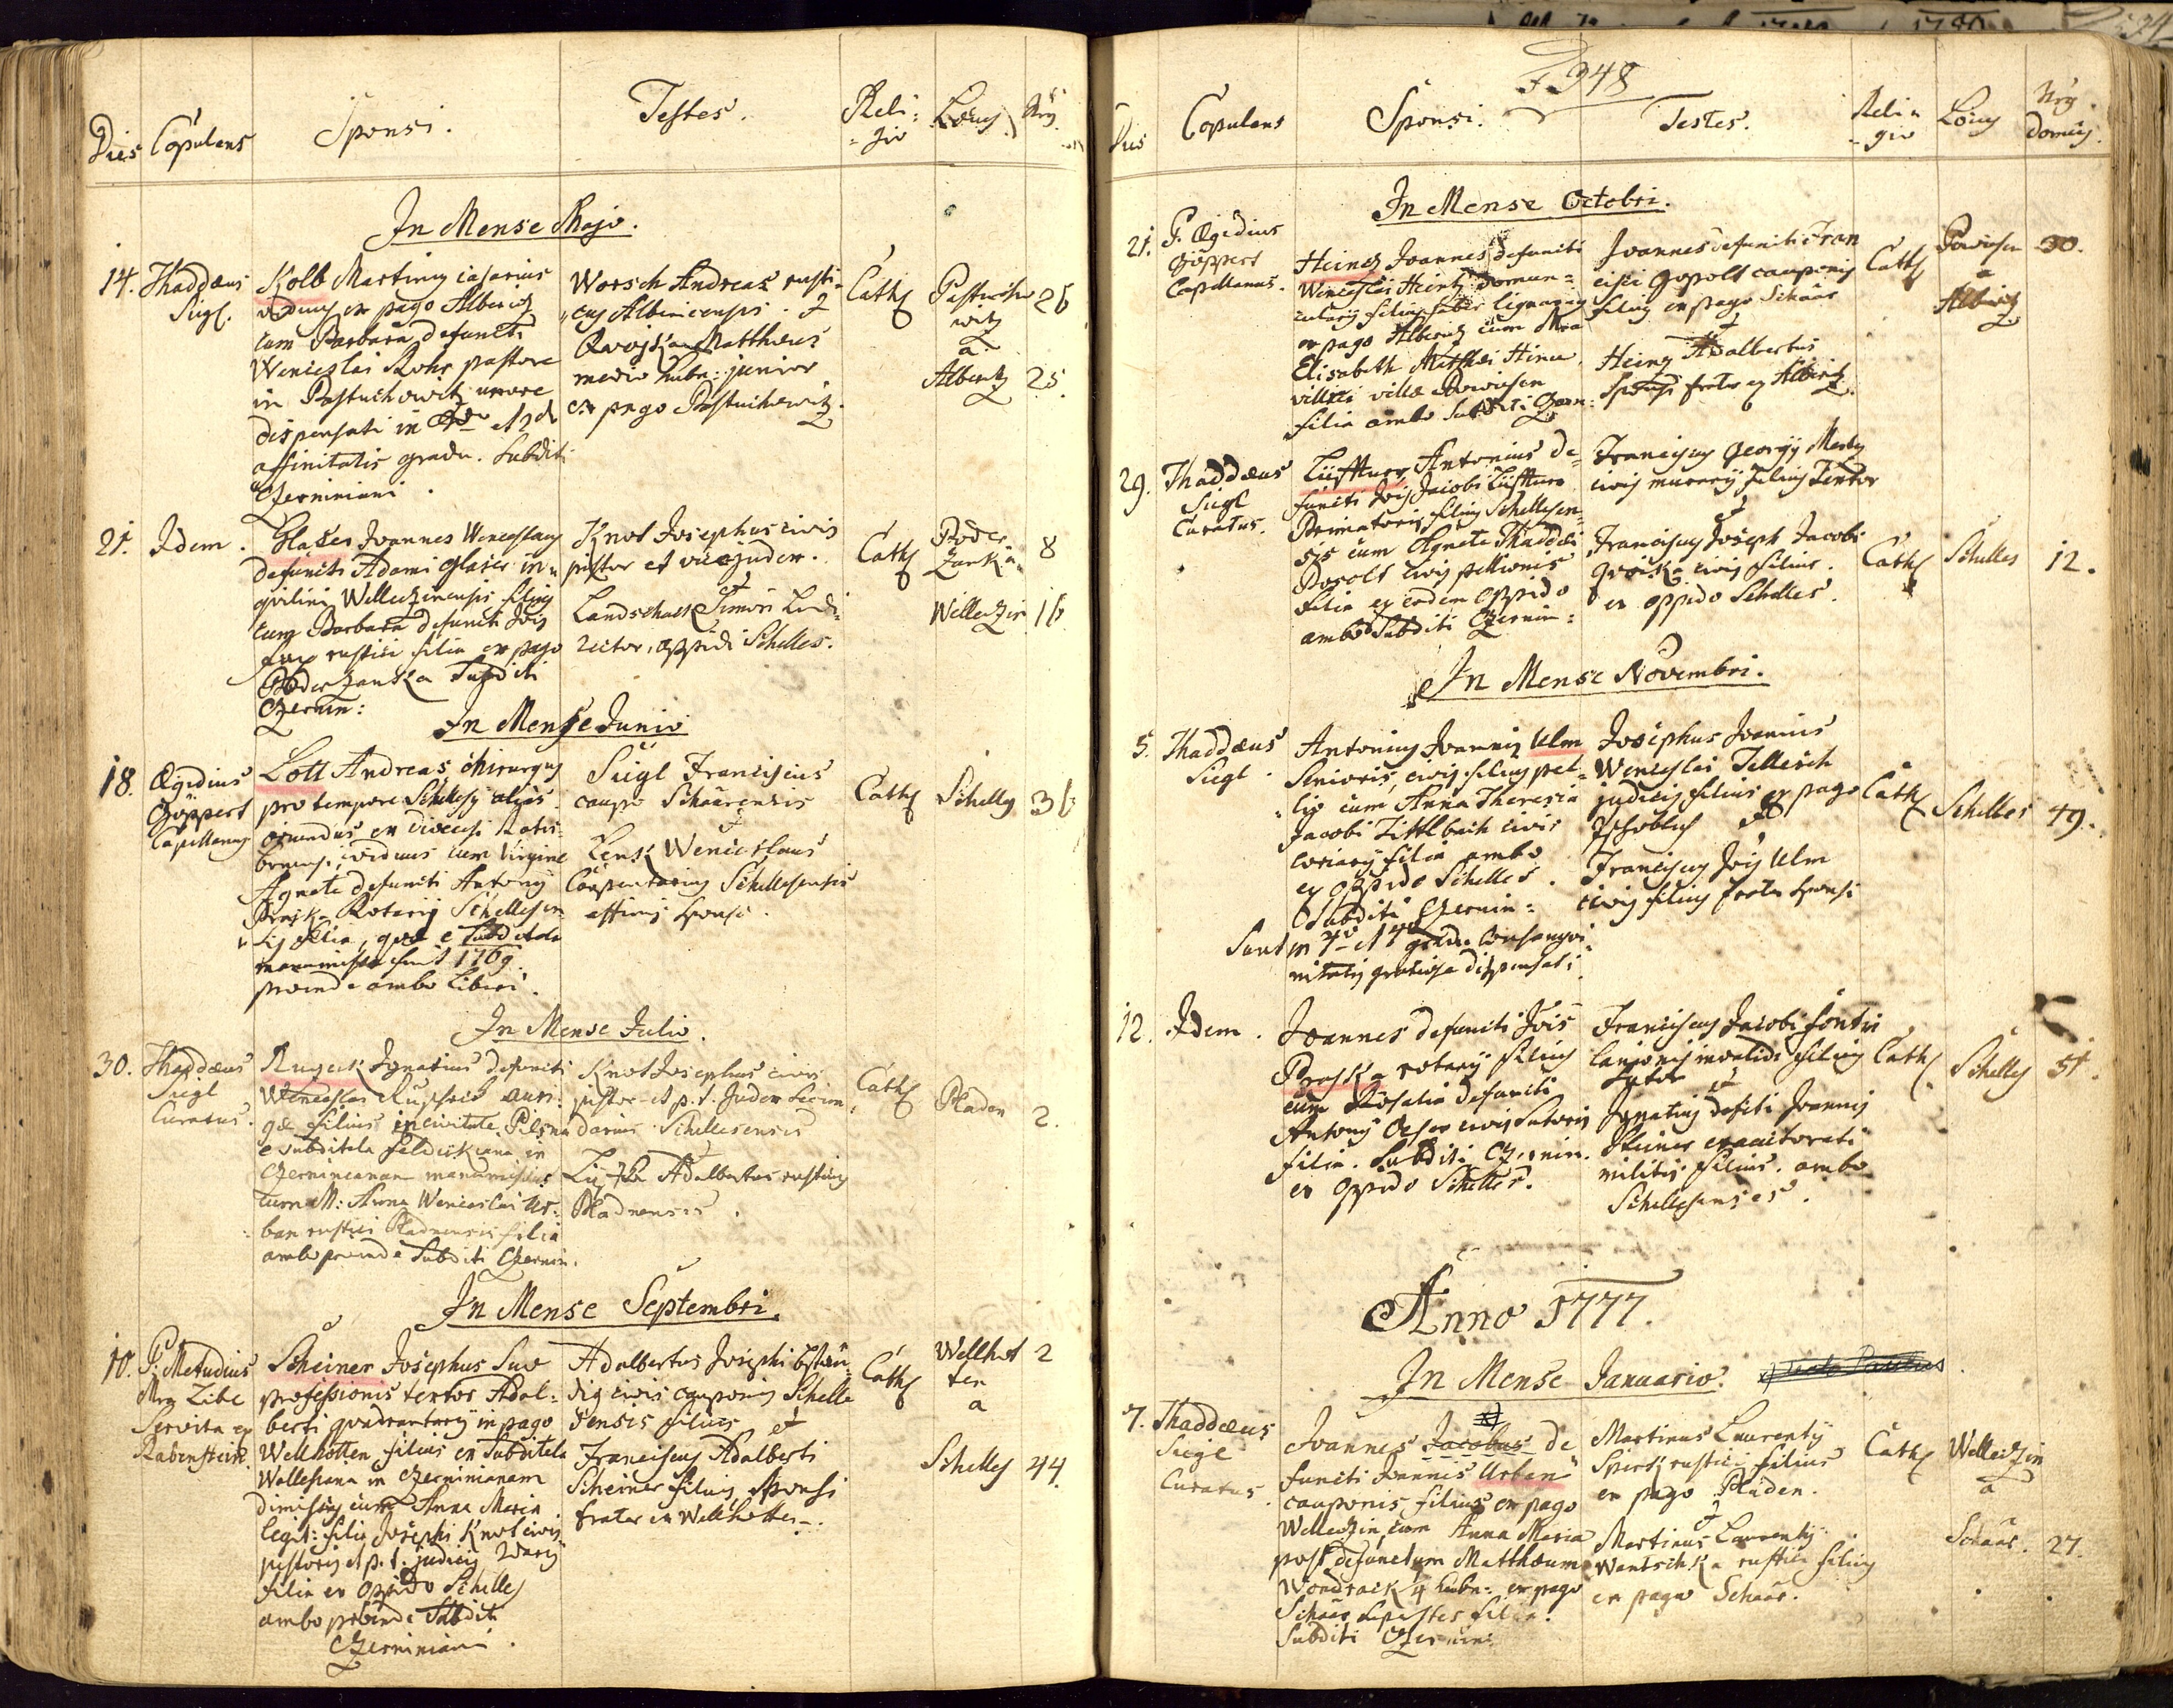 Dies Copulans Sponsi. Testes. Reli=
gio Locus
In Mense Majo.
14. Thaddæus
Siegl.
Kolb Martinus casarius
viduus ex pago Alberitz
cum Barbara defuncti
Wenceslai Rohr pastore
in Pastuchowitz uxore
dispensati in et 2do
affinitatis gradu. Subditi
Czerniniani.
Worsch Andreas rusti
cus Albericensis. &
Matthæus
medio hubn: junior
ex pago Pastuchowitz.
Cath
Pastucho
witz
a
Alberitz
26
25.
21. Idem.
Glaser Joannes Wenceslaus
defuncti Adami Glaser in=
quilini Welletzinensis filius
cum Barbara defuncti Jois
rustici filia ex pago
Poderzanka Subditi
Czernin:
Knot Josephus civis
pistor et vicejudex.
&
Landschack Simon Ludi
rector, oppidi Schelles.
Cath
Poder
zanka
Welletzin
8
16
In Mense Junio
18. Ægidius
Göppert
Capellanus
Lott Andreas, chirurgus
pro tempore Schellesij
oriundus ex dioecesi Ratis=
bonensi viduus cum Virgine
Agnete defuncti Antonij
Praska Rotarij Schellesen
sis filia, quæ e Subditela
manumissa fuit 1769.
proinde ambo Liberi.
Siegl Franciscus
caupo Schaarensis
&
Zensk Wenceslaus
Carpentarius Schellesensis
affinis sponsi.
Cath
Schelles
36
In Mense Julio.
30. Thaddæus
Siegl
Curatus.
Ignatius defuncti
Wenceslai auri=
gæ filius in civitate Pilsna
e subditela
Czerninianam manumissus
cum M: Anna Wenceslai Ur=
ban rustici Pladnensis filia
ambo proinde Subditi Czernin.
Knot Josephus civis
pistor et p. t. Judex
Schellesensis
&
Adalbertus rusticus
Pladnensis.
Cath
Pladen
2.
In Mense Septembri.
10. P. Metudius
Libe
Servita ex
Rabenstein
Scheiner Josephus Suæ
professionis textor Adal=
berti quadrantarij in pago
Wellhotten filius ex Subditela
Wallesiana in Czerninianam
dimissus cum Anna Maria
legit: filia Josephi Knot civis
pistoris et p. t. judicis
filia ex Oppido Schelles
ambo proinde Subditi
Czerniniani.
Adalbertus Josephi
civis cauponis Schelle
sensis filius
&
Franciscus Adalberti
Scheiner filius, sponsi
frater ex Wellhotten.
Cath
Wellhot
ten
a
Schelles
2
44.
F 348
Dies Copulans Sponsi. Testes. Reli=
gio Locus Nrus
domus.
In Mense Octobri.
21. P. Ægidius
Göppert
Capellanus.
Heintz Joannes defuncti
Wenceslai Heintz doman=
cularij filius faber lignarius
ex pago Alberitz cum
Elisabeth Matthæi
villici villæ Powiesen
filia ambo Subditi Czern:
Joannes defuncti Fran
cisci Gopolt cauponis
filius ex pago Schaar
&
Heintz Adalbertus
sponsi frater ex Alberitz.
Cath
Powiesen
a
Alberitz
30.
29. Thaddæus
Siegl
Curatus.
Lüfftner Antonius de=
functi Jois Jacobi Lüfftner
Primatoris filius Schellesen=
sis cum Agnete Thaddæi
Dosolt civis pellionis
filia ex eodem Oppido
ambo Subditi Czernin:
Franciscus Georgij
civis murarij filius
&
Franciscus Joseph Jacobi
civis filius.
ex oppido Schelles.
Cath
Schelles
12.
In Mense Novembri.
5. Thaddæus
Siegl.
Antonius Joannis Ulm
Senioris, civis filius pel=
lis cum Anna Theresia
Jacobi Zittlbach civis
coriarij filia ambo
ex Oppido Schelles.
Subditi Czernin:
Sunt in 4to et 4to gradu Consangvi
nitatis gratiose dispensati
Josephus Joannis
Wenceslai Tellesch
judicis filius ex pago
&
Franciscus Jois Ulm
civis filius frater sponsi
Cath
Schelles
49.
12. Idem.
Joannes defuncti Jois
Praska rotarij filius
cum Rosalia defuncti
Antonij civis Sutoris
filia. Subditi Czernin.
ex Oppido Schelles.
Franciscus Jacobi
lanionis filius
Sutor &
Ignatius defcti Joannis
Steiner exauctorati
militis filius. ambo
Schellesenses.
Cath
Schelles
51.
Anno 1777.
In Mense Januario.
7. Thaddæus
Siegl
Curatus.
Joannes Jacobus de
functi Joannis Urban
cauponis filius ex pago
Welletzin, cum Anna Maria
post defunctum Matthæum
Wondrack 4 hubn: ex pago
Schaar superstes filia.
Subditi Czernin:
Martinus Laurentij
rustici filius
ex pago Pladen.
&
Martinus Laurentij
Wantschka rustici filius
ex pago Schaar.
Cath
Welletzin
a
Schaar. 27.